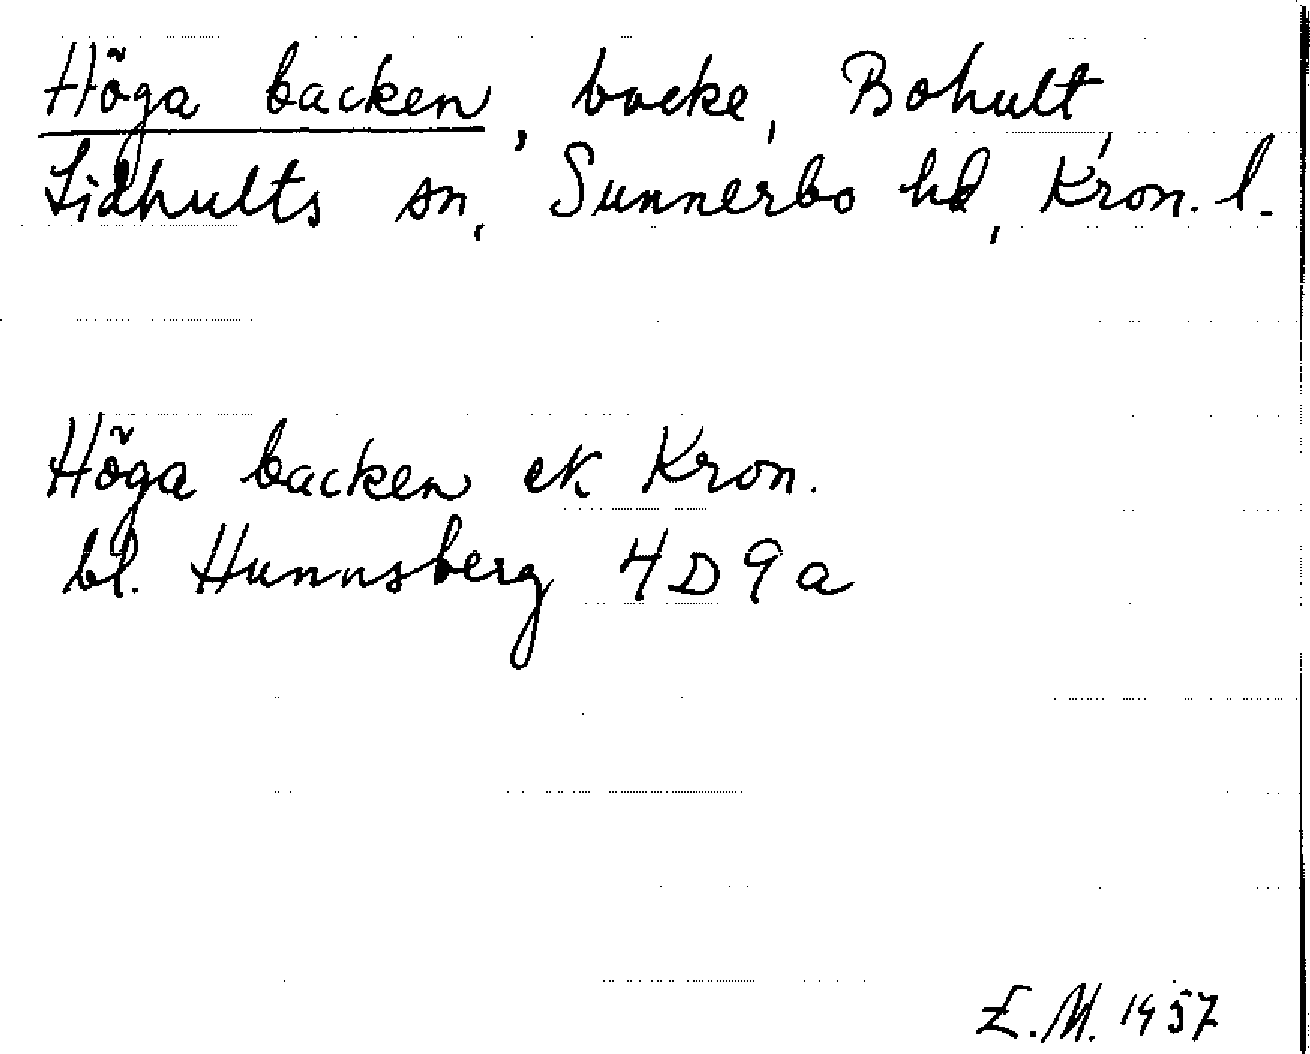 Höga backen, backe, Bohult,
Lidhults sn, Sunnerbo hd, Kron. l.
Höga backen ek. Kron.
bl. Hunnsberg 4D9a
E.M. 1957